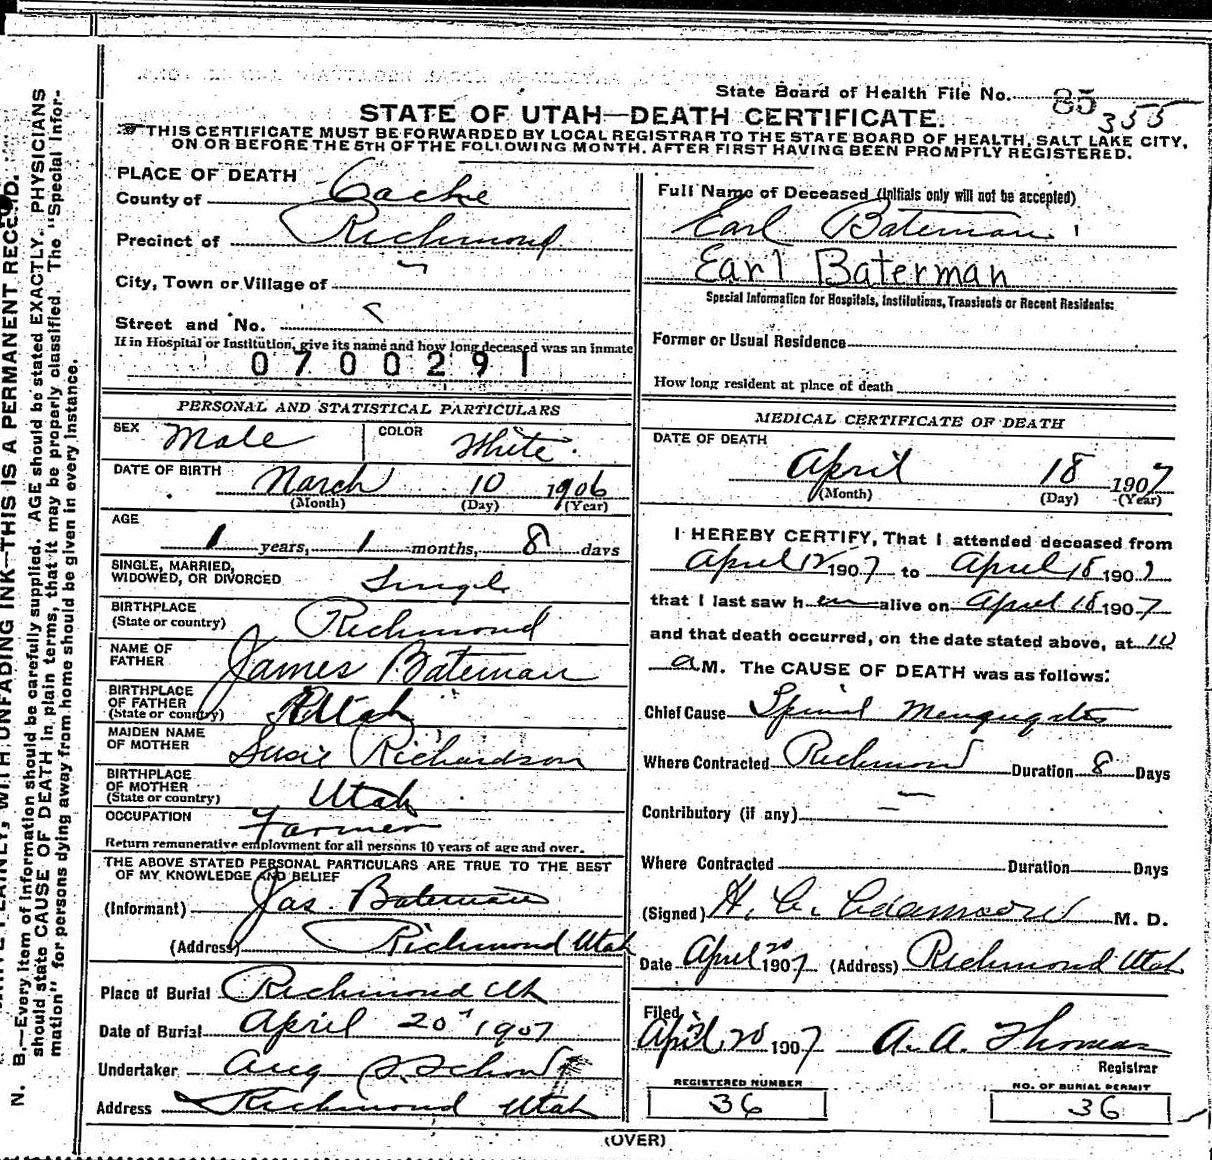 State Board of Health File No. 85 355
STATE OF UTAH—DEATH CERTIFICATE.
THIS CERTIFICATE MUST BE FORWARDED BY LOCAL REGISTRAR TO THE STATE BOARD OF HEALTH, SALT LAKE CITY,
ON OR BEFORE THE 5TH OF THE FOLLOWING MONTH, AFTER FIRST HAVING BEEN PROMPTLY REGISTERED.
PLACE OF DEATH
County of Cache
Precinct of Richmond
City, Town or Village of
Street and No.
If in Hospital or Institution, give its name and how long deceased was an inmate
0700291
PERSONAL AND STATISTICAL PARTICULARS
SEX Male COLOR White
DATE OF BIRTH March 10 1906
(Month) (Day) (Year)
AGE
1 years, 1 months, 8 days
SINGLE, MARRIED,
WIDOWED, OR DIVORCED Single
BIRTHPLACE
(State or country) Richmond
NAME OF
FATHER James Bateman
BIRTHPLACE
OF FATHER
(State or country) Utah
MAIDEN NAME
OF MOTHER Susie Richardson
BIRTHPLACE
OF MOTHER
(State or country) Utah
OCCUPATION Farmer
Return remunerative employment for all persons 10 years of age and over.
THE ABOVE STATED PERSONAL PARTICULARS ARE TRUE TO THE BEST
OF MY KNOWLEDGE AND BELIEF
(Informant) Jas. Bateman
(Address) Richmond Utah
Place of Burial Richmond Ut
Date of Burial April 20 1907
Undertaker Aug S. Schow
Address Richmond Utah
Full Name of Deceased (Initials only will not be accepted)
Earl Bateman
Earl Baterman
Special Information for Hospitals, Institutions, Transients or Recent Residents:
Former or Usual Residence
How long resident at place of death
MEDICAL CERTIFICATE OF DEATH
DATE OF DEATH
April 18 1907
(Month) (Day) (Year)
I HEREBY CERTIFY, That I attended deceased from
April 12 1907 to April 18 1907
that I last saw h em alive on April 18 1907
and that death occurred, on the date stated above, at 10
a M. The CAUSE OF DEATH was as follows:
Chief Cause Spinal
Where Contracted Richmond Duration 8 Days
Contributory (if any)
Where Contracted Duration Days
(Signed) H. M. D.
Date April 20 1907 (Address) Richmond Utah
Filed
April 20 1907 A. A. Thomas
Registrar
REGISTERED NUMBER
36
NO. OF BURIAL PERMIT
36
(OVER)
PLAINLY, WITH UNFADING INK—THIS IS A PERMANENT RECORD.
N. B.—Every item of information should be carefully supplied. AGE should be stated EXACTLY. PHYSICIANS
should state CAUSE OF DEATH in plain terms, that it may be properly classified. The "Special Infor-
mation" for persons dying away from home should be given in every instance.